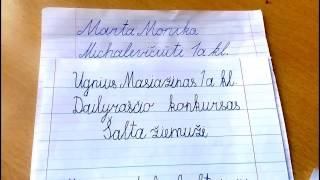 Marta Monika
Michalevičiūtė 1a kl.
Ugnius Masiažinas 1a kl
Dailyraščio konkursas
Šalta žiemužė